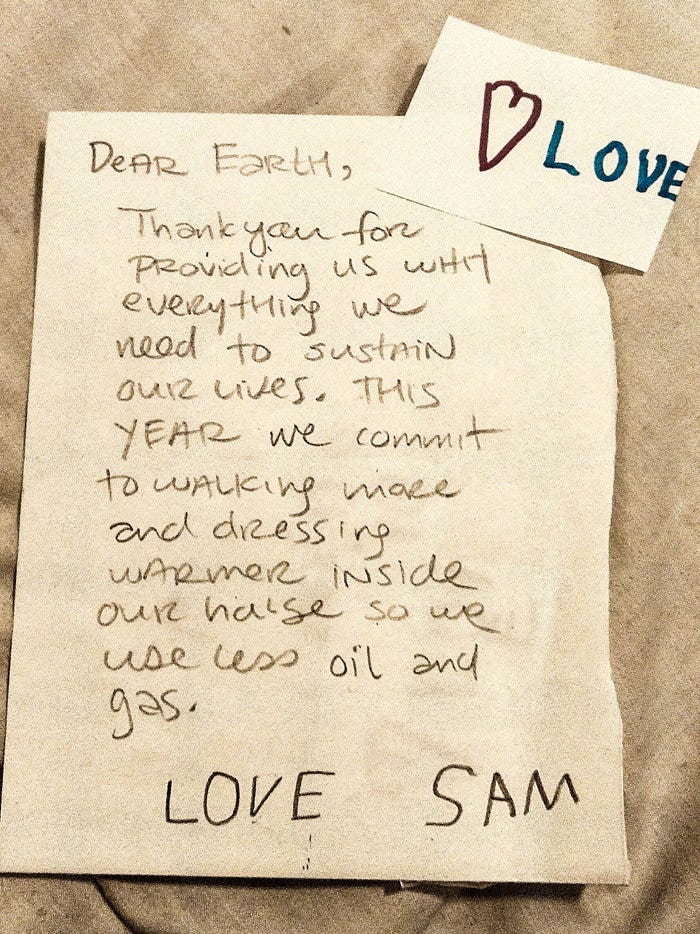 LOVE
DEAR EARTH,
Thank you for
PROVIDING US WITH
everything we
need to SUSTAIN
OUR LIVES. THIS
YEAR we commit
to WALKING more
and dressing
WARMER INSIDE
our house so we
use less oil and
gas.
LOVE SAM